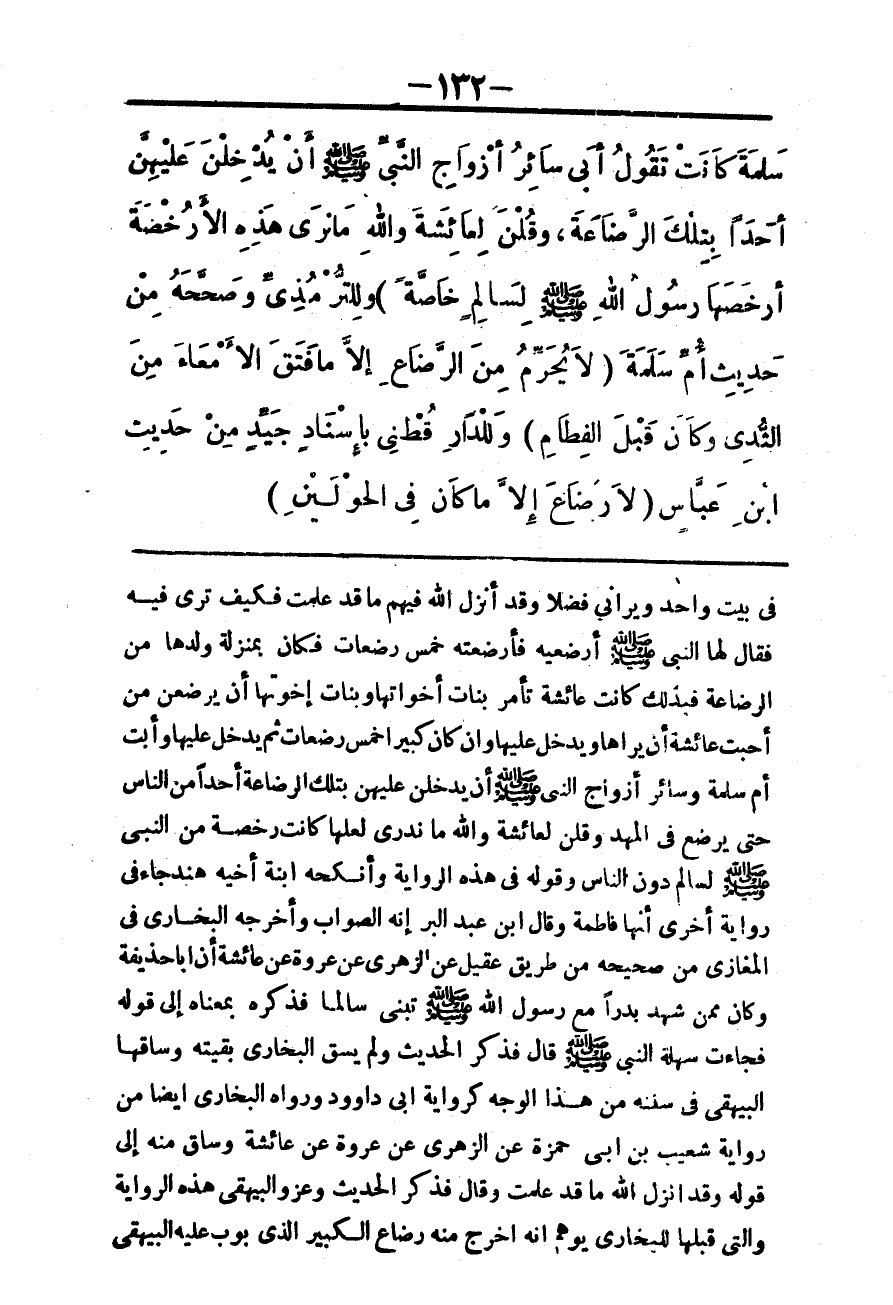 -١٣٢-
سَلمَةَ كَانَتْ تَقُولُ أَبى سَائِرُ أزْوَاجِ النَّبىِّ ﷺ أَنْ يُدْخِلْنَ عَلَيْهِنَّ
أحَدَاً بِتِلْكَ الرَّضَاعَةَ، وقُلْنَ لِعَائِشَةَ واللهِ مَانَرَى هَذِهِ الأَرُخْصَةَ
أرخَصَهَا رسُولُ اللهِ ﷺ لِسَالِمٍ خَاصَّةً ) وللِتُّرْمُذِىِّ وصَحَّحَهُ مِنْ
حَدِيثِ أُمِّ سَلَمَةَ ( لاَ يُحَرِّمُ مِنَ الرَّضَاعِ إلاَّ مَافَتَقَ الاَْ مْعَاءَ مِنَ
الثَّدِى وَكَاَنَ قَبْلَ الفِطَامِ ) وَللْدَّارِ قُطْنِى بإِسْنَادٍ جَيِّدٍ مِنْ حَدِيثِ
ابْنِ عَبَّاسٍ ( لاَ رَضَاعَ إِلاَّ مَاكَانَ فِى الحَوْلَيْنِ )
فى بيت واحد ويرانى فضلا وقد أنزل الله فيهم ماقد علمت فكيف ترى فيه
فقال لها النبى ﷺ أرضعيه فأرضعته خمس رضعات فكان بمنزلة ولدها من
الرضاعة فبذلك كانت عائشة تأمر بنات أخواتها وبنات إخوتها أن يرضعن من
أحبت عائشة أن يراها ويدخل عليها وان كان كبيرا خمس رضعات ثم يدخل عليها وأبت
أم سلمة وسائر أزواج النبى ﷺ أن يدخلن عليهن بتلك الرضاعة أحداً من الناس
حتى يرضع فى المهد وقلن لعائشة والله ما ندرى لعلها كانت رخصة من النبى
ﷺ لسالم دون الناس وقوله فى هذه الرواية وأنكحه ابنة أخيه هند جاء فى
رواية أخرى أنها فاطمة وقال ابن عبد البر إنه الصواب وأخرجه البخارى فى
المغازى من صحيحه من طريق عقيل عن الزهرى عن عروة عن عائشة أن اباحذيفة
وكان ممن شهد بدراً مع رسول الله ﷺ تبنى سالما فذكره بمعناه إلى قوله
فجاءت سهلة النبى ﷺ قال فذكر الحديث ولم يسق البخارى بقيته وساقها
البيهقى فى سننه من هذا الوجه كرواية ابى داوود ورواه البخارى ايضا من
رواية شعيب بن ابى حمزة عن الزهرى عن عروة عن عائشة وساق منه إلى
قوله وقد انزل الله ما قد علمت وقال فذكر الحديث وعزو البيهقى هذه الرواية
والتى قبلها للبخارى يوهم انه اخرج منه رضاع الكبير الذى بوب عليه البيهقى